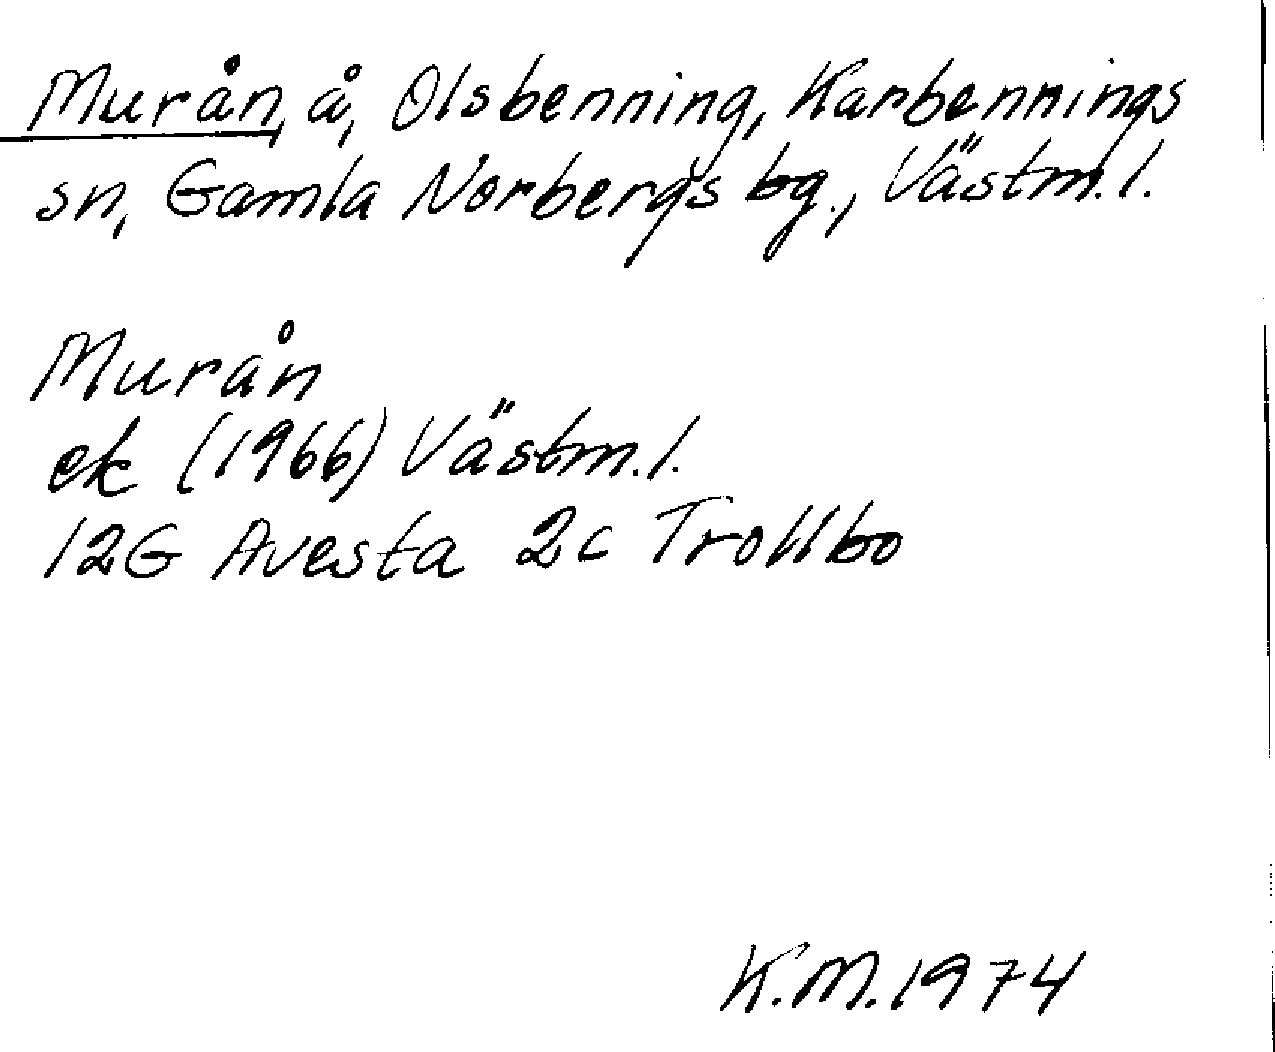 Murån, å, Olsbenning, Karbennings
sn, Gamla Norbergs bg., Västm.l.
Murån
ek (1966) Västm.l.
12G Avesta 2c Trollbo
K.M. 1974